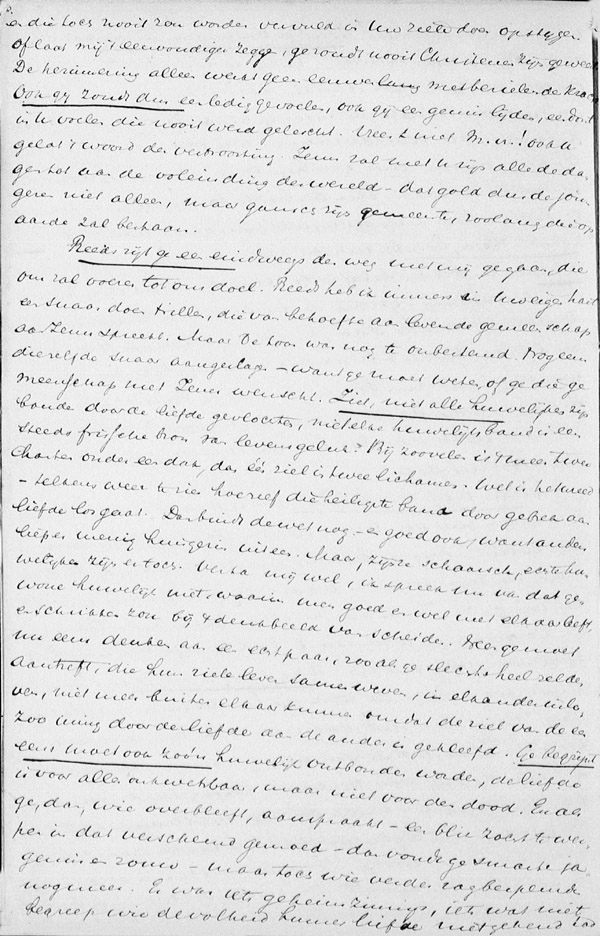 die toch nooit zou worden vervuld in Uw ziele doen opstijgen
of laat mij 't eenvoudiger zeggen, ge zoudt nooit Christenen zijn geweest
De herinnering alleen werkt geen eeuwen lang met bezielende kracht
Ook gij zoudt dus een ledig gevoelen, ook gij een gemis lijden, een dorst
in U voelen die nooit werd gelescht. Vrees niet M. Vr.! ook u
gelat 't woord der vertroosting. Jezus zal met u zijn alle de da
gen tot aan de voleinding der wereld - dat gold den jon
geren niet alleen, maar gansch zijn gemeente, zoolang die op
aarde zal bestaan.
Reeds zijt ge een eindweegs den weg met mij gegaan, die
ons zal voeren tot ons doel. Reeds heb ik immers in Uw eigen hart
een snaar doen trillen, die van behoefte aan levende gemeenschap
aan Jezus spreekt. Maar De toon was nog te onbestemd. Nog eens
diezelfde snaar aangeslagen - want ge moet weten, of ge die ge
meenschap met Jezus wenscht. Ziet, niet alle huwelijken zijn
banden door de liefde gevlochten, niet elke huwelijksband is een
steeds frissche bron van levensgeluk. Bij zoovelen is 't meer twee
harten onder een dak, dan één ziel in twee lichamen. Wel is het wreed
- telkens weer te zien hoe ook die heiligste band door gebrek aan
liefde losgaat. Dan bindt de wet nog - en goed ook, want anders
liepen menig huisgezin uiteen. Maar, zij 't schaarsch, echte hu
welijken zijn er toch. Versta mij wel, ik spreek nu van dat ge
wone huwelijk niet, waarin men goed en wel met elkaar leeft,
en schrikken zou bij 't denkbeeld van scheiden. Neen ge moet
nu eens denken aan een echtpaar, zoo als ge slechts heel zelden
aantreft, die hun zieleleven samen weven, in elkander inle
ven, niet meer buiten elkaar kunnen omdat de ziel van de een
zoo innig door de liefde aan de ander is gekleefd. Ge begrijpt
eens moet ook zoo'n huwelijk ontbonden worden, de liefde
is voor alles onkwetsbaar, maar niet voor den dood. En als
ge, dan, wie overbleeft, aanspraakt - een blik zocht te wer
pen in dat verscheurd gemoed - dan vondt ge smart ja
gemis en rouw - maar toch wie verder zag bespeurde
nog meer. Er was iets geheimzinnigs, iets wat niet
begreep wie de volheid hunner liefde niet gekend had